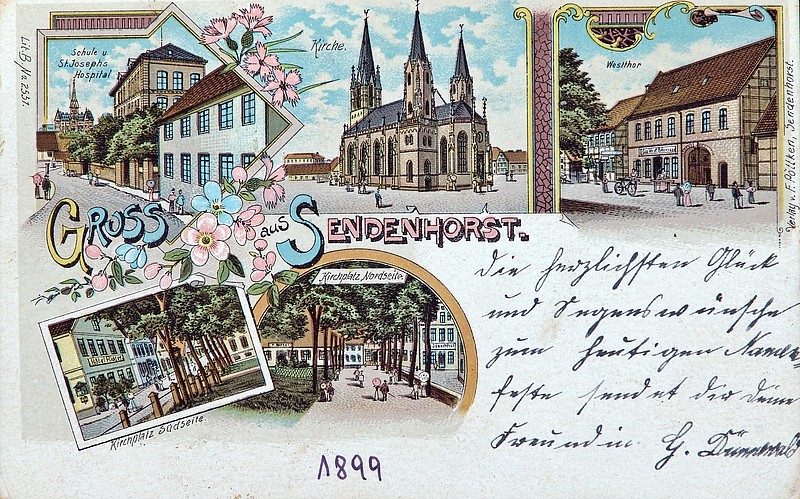 Lit. B/No 2551.
Schule u.
St. Josephs
Hospital
Kirche.
Westthor
Verlag v. F. Pöllken, Sendenhorst.
GRUSS aus SENDENHORST.
Kirchplatz Nordseite.
Kirchplatz Südseite.
die herzlichsten Glück
und Segenswünsche
zum heutigen Namens
feste sendet dir deine
Freundin G.
1899